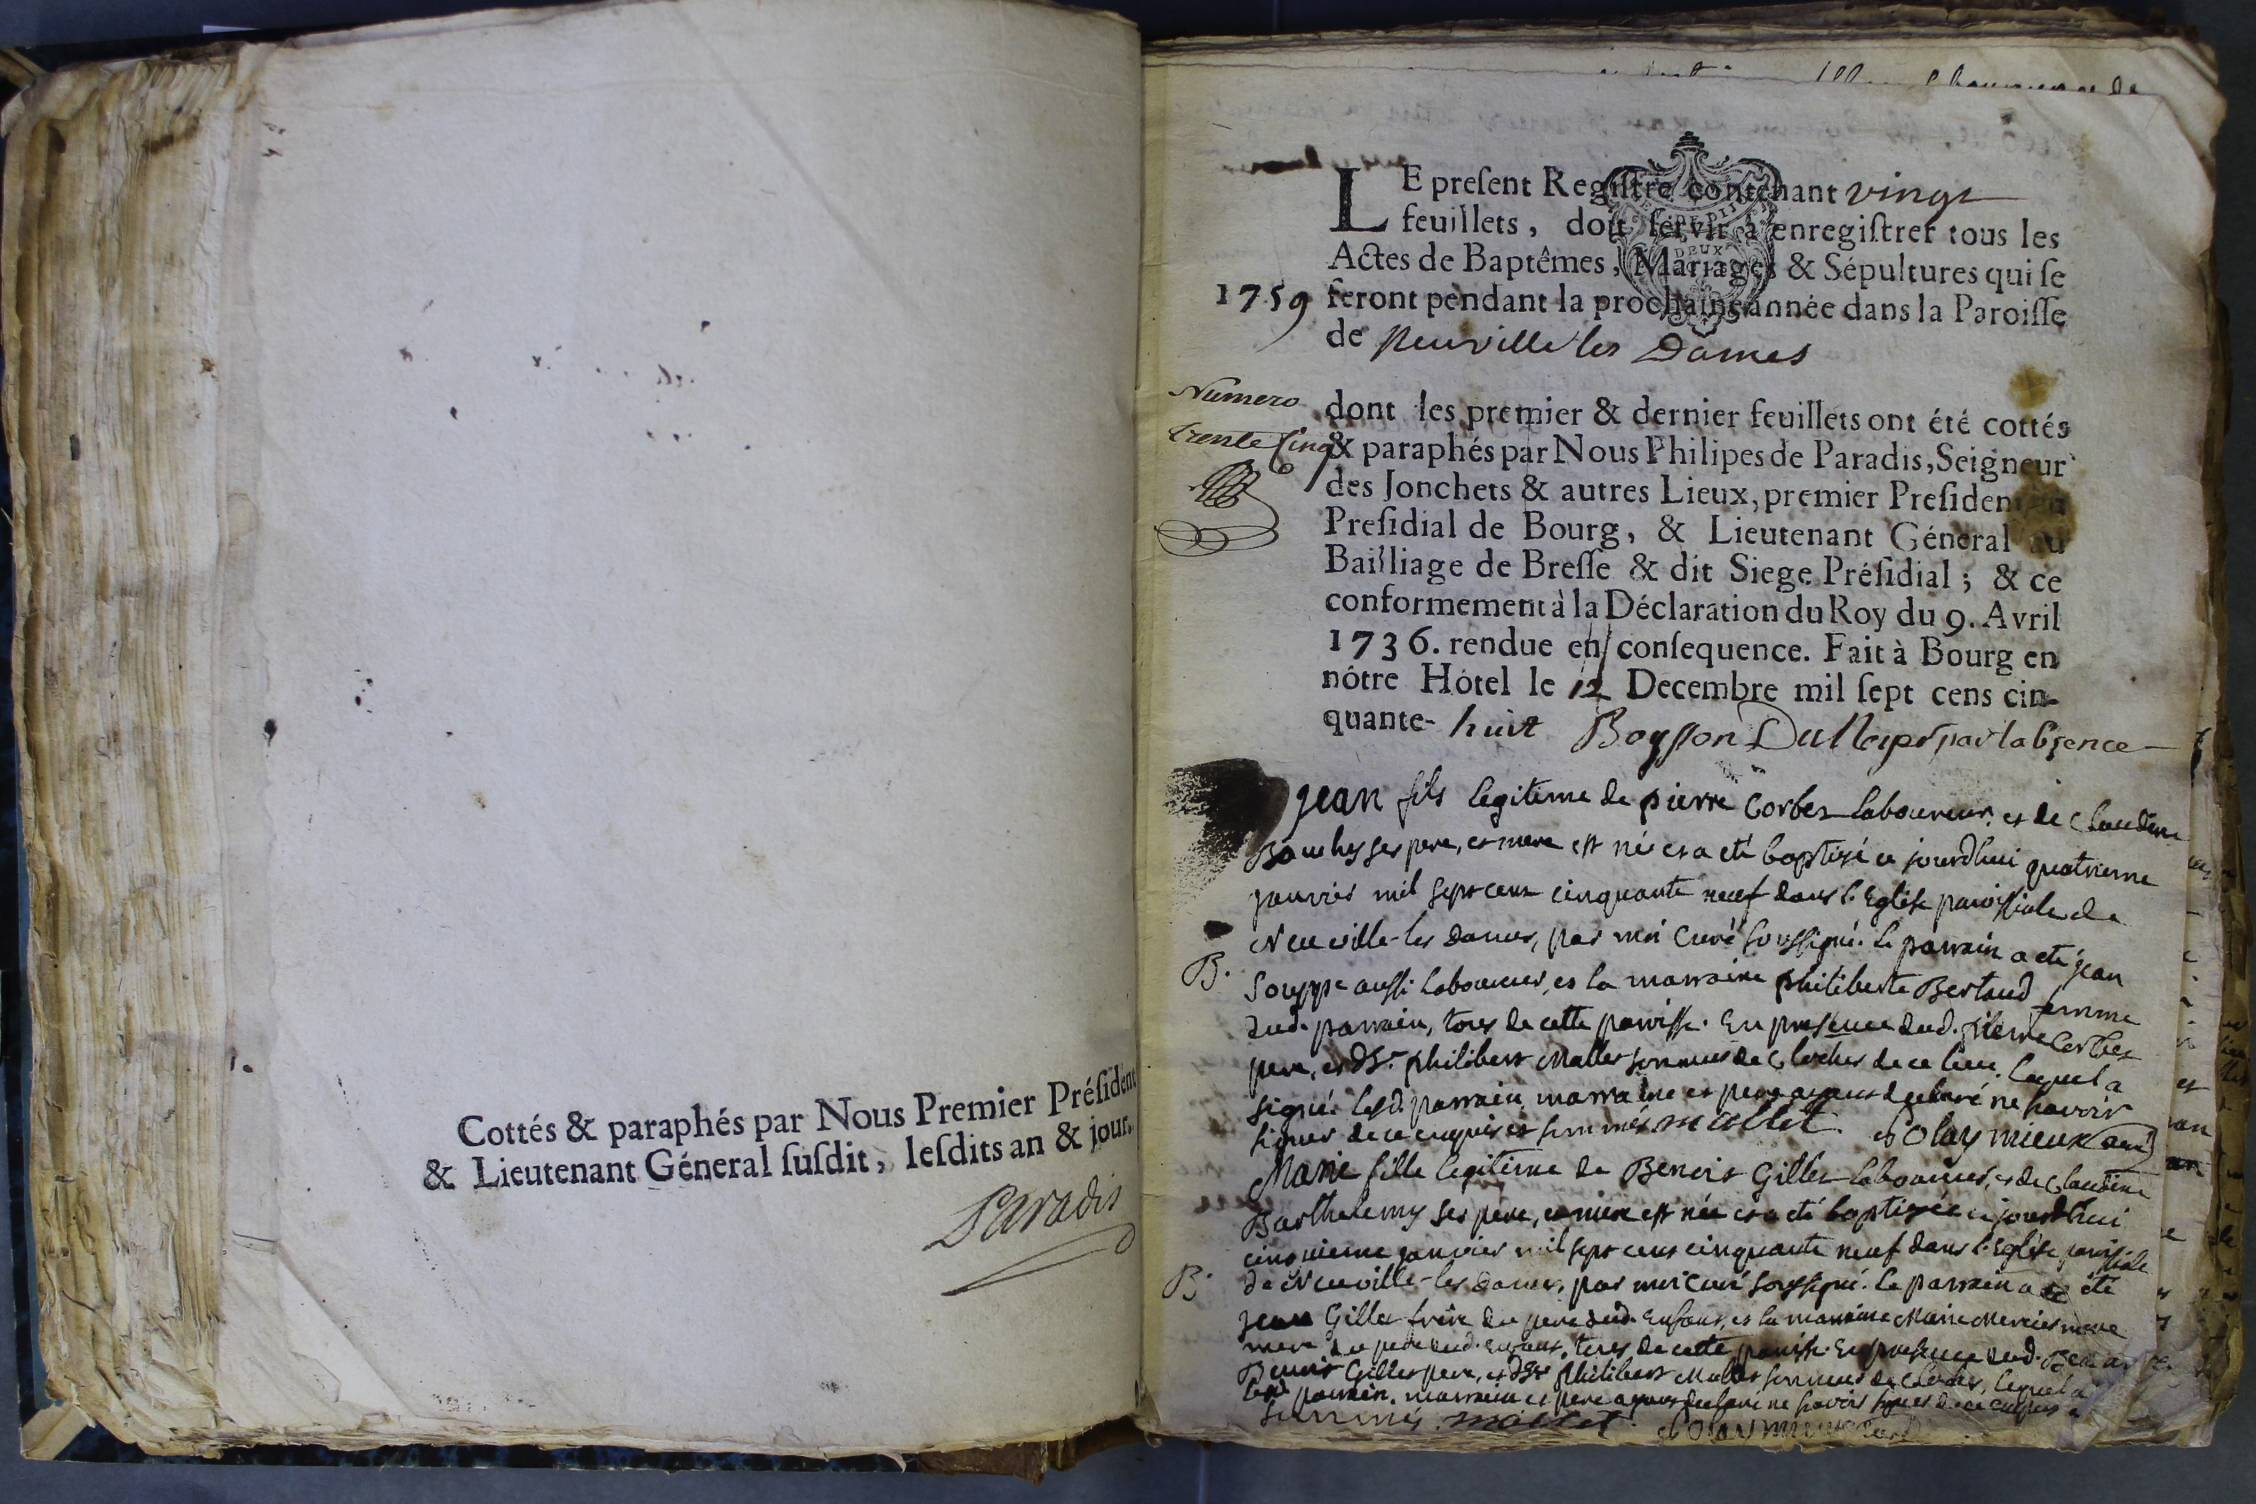 Cottés & paraphés par Nous Premier Préſident
& Lieutenant Géneral ſuſdit, leſdits an & jour.
Paradis
LE preſent Regiſtre contenant vingt
feuillets, doit ſervir à enregiſtrer tous les
Actes de Baptêmes, Mariages & Sépultures qui ſe
1759 feront pendant la prochaine année dans la Paroiſſe
de Neuville les Dames
Numero
trente cinq
dont les premier & dernier feuillets ont été cottés
& paraphés par Nous Philipes de Paradis, Seigneur
des Jonchets & autres Lieux, premier Preſident
Preſidial de Bourg, & Lieutenant Géneral au
Bailliage de Breſſe & dit Siege Préſidial ; & ce
conformement à la Déclaration du Roy du 9. Avril
1736. rendue en conſequence. Fait à Bourg en
nôtre Hôtel le 12 Decembre mil ſept cens cin-
quante- huit Boysson par labsence
jean fils legitime de pierre Corbet laboureur, et de Claudine
ses pere, et mere est né et a eté baptisé ce jourdhui quatrieme
janvier mil sept cent cinquante neuf dans l'Eglise paroissiale de
Neuville-les dames, par moi Curé soussigné. Le parrain a eté jean
B.
aussi laboureur, et la marraine philiberte Bertaud femme
dud. parrain, tous de cette paroisse. En presence dud. pierre Corbet
pere, et de Sr. philibert Mallet sonneur de cloches de ce lieu, lequel a
signé. Lesd. parrain marraine et pere ayant declaré ne scavoir
signer de ce enquis et sommés. mallet
Marie fille legitime de Benoit Gillet laboureur, et de Claudine
Barthelemy ses pere, et mere est née et a eté baptisée ce jourdhui
cinquieme janvier mil sept cent cinquante neuf dans l'Eglise paroissiale
B.
de Neuville-les dames, par moi Curé soussigné. Le parrain a eté
jean Gillet frere du pere dud. Enfant, et la marraine Marie Mercier mere
mere du pere dud. enfant, tous de cette paroisse. En presence dud.
Benoit Gillet pere, et de Sr. philibert Mallet sonneur de cloches, lequel a
parrain, marraine et pere ayant declaré ne scavoir signer de ce enquis
sommés. mallet